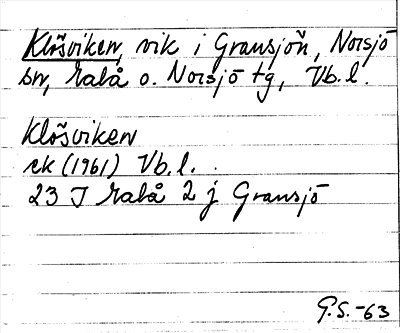 Klösviken, vik i Gransjön, Norsjö
sn, Malå o. Norsjö tg, Vb. l.
Klösviken
ek (1961) Vb. l.
23 J Malå 2 j Gransjö
G.S. -63